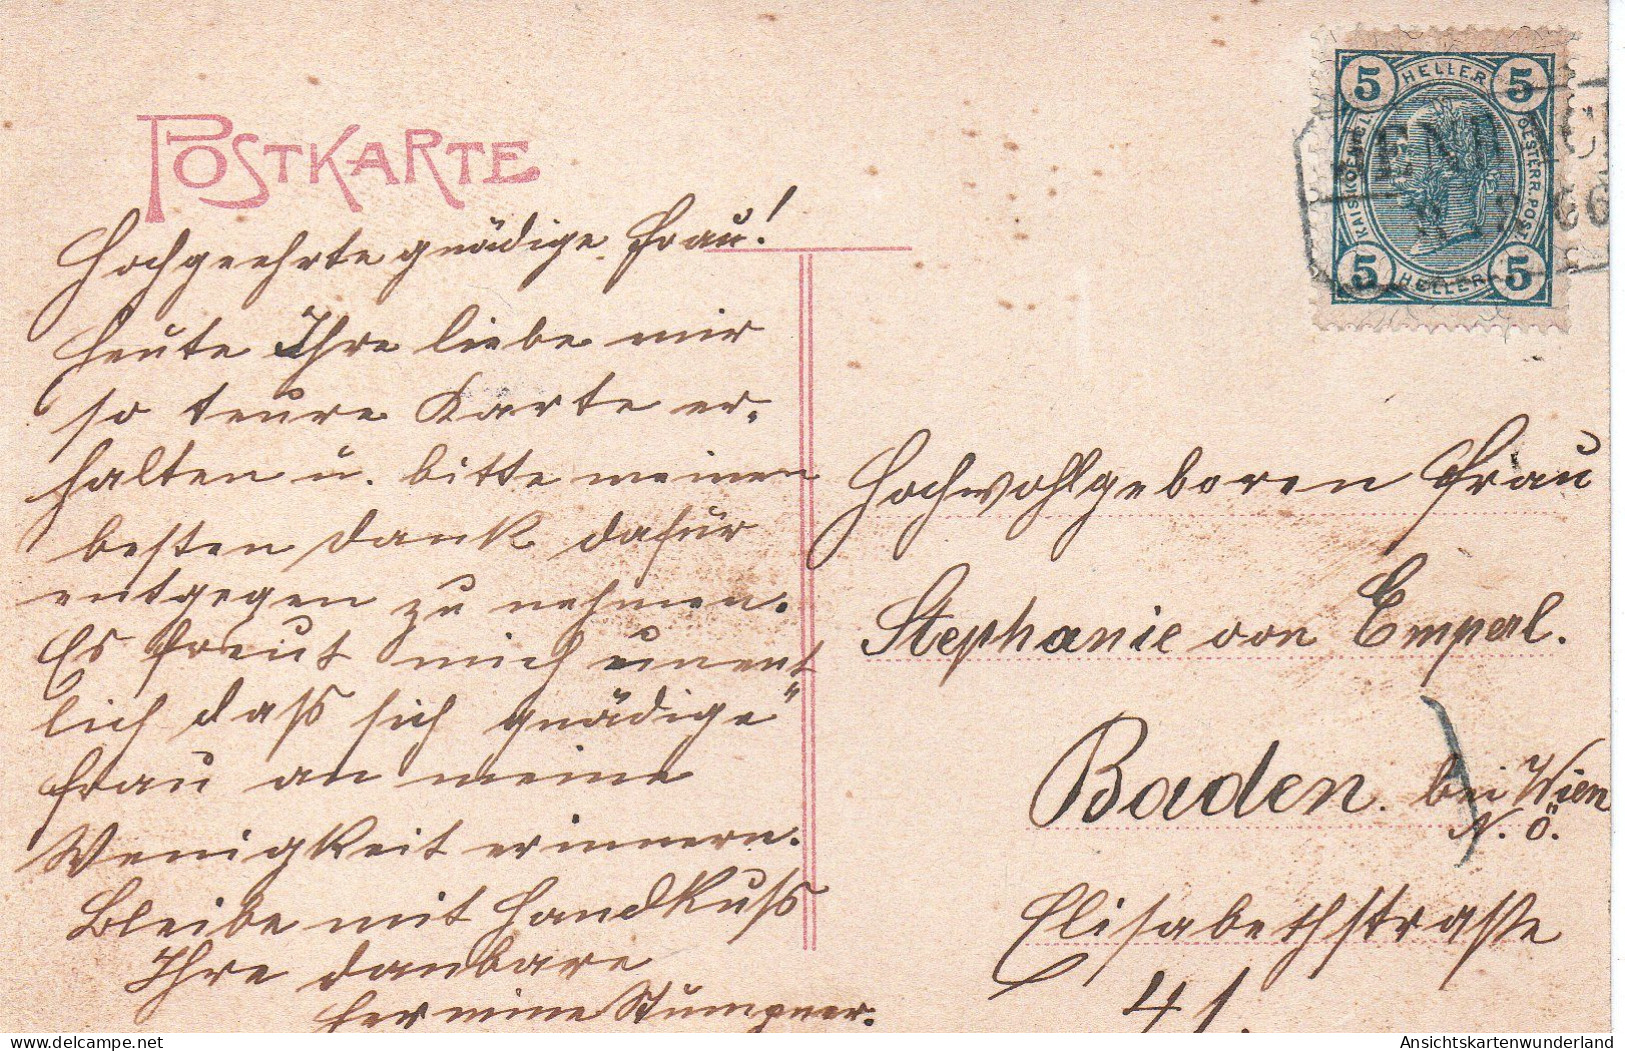 POSTKARTE
Hochgeehrte gnädige Frau!
Heute Ihre liebe mir
so teure Karte er-
halten u. bitte meinen
besten Dank dafür
entgegen zu nehmen.
Es freut mich unent
lich daß sich gnädige
Frau an meine
Wenigkeit erinnern.
Bleibe mit Handkuß
Ihre dankbare
Hermine
5 HELLER 5
KAIS. KÖNIGL. OESTERR. POST
5 HELLER 5
Hochwohlgeboren Frau
Stephanie von Emperl.
Baden. bei Wien
N. Ö.
Elisabethstraße
41.
AnsichtskartenWunderland